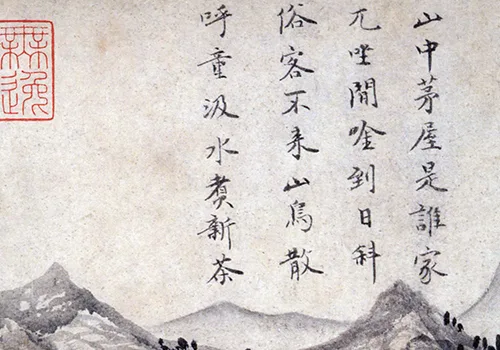 山中茅屋是誰家
兀坐閒唫到日斜
俗客不来山鳥散
呼童汲水煑新茶